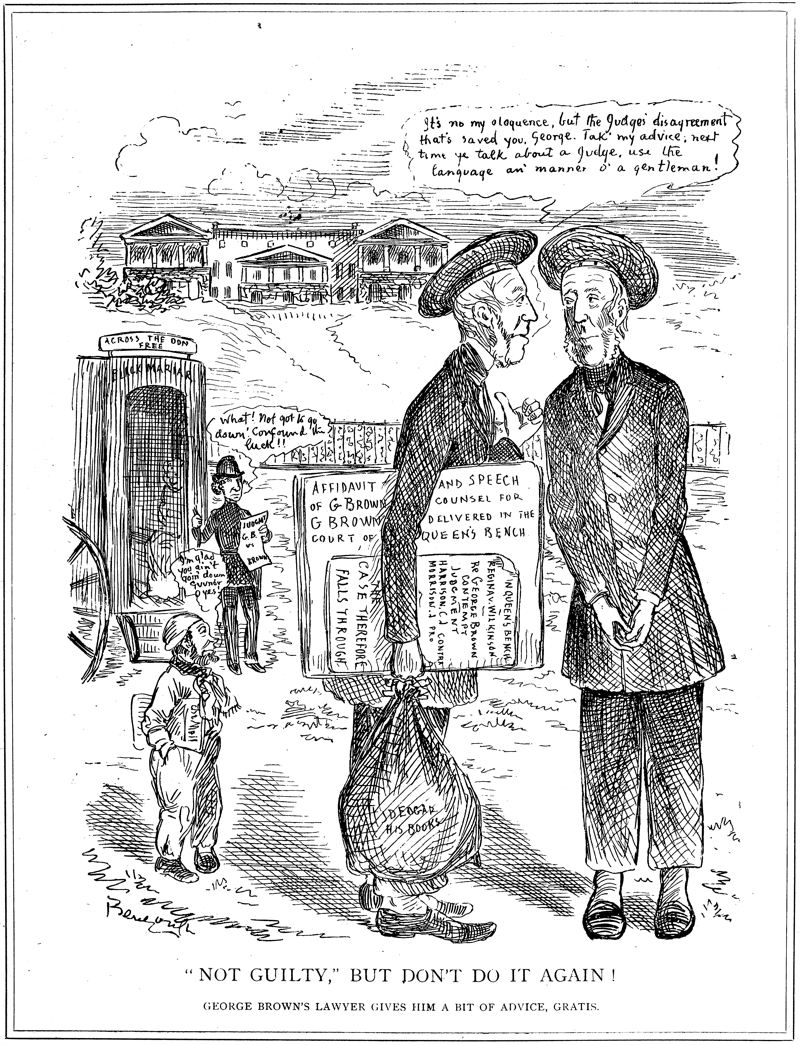 It's no my eloquence, but the Judges' disagreement
that's saved you, George. Tak' my advice; next
time ye talk about a Judge, use the
language an' manner o' a gentleman!
ACROSS THE DON
FREE
BLACK MARIAR
What! Not got to go
down! Confound the
luck!!
JUDGMT
G.B.
vs
BROWN
I'm glad
you ain't
goin' down
Guvner
AFFIDAVIT AND SPEECH
OF G BROWN COUNSEL FOR
G BROWN DELIVERED IN THE
COURT OF QUEEN'S BENCH
IN QUEENS BENCH
REGINA v. WILKINSON
Re GEORGE BROWN
CONTEMPT
JUDGMENT
HARRISON, C.J. CONTRA
MORRISON, J PRO
CASE THEREFORE
FALLS THROUGH
D EDGAR
HIS BOOKS
Bengough
"NOT GUILTY," BUT DON'T DO IT AGAIN!
GEORGE BROWN'S LAWYER GIVES HIM A BIT OF ADVICE, GRATIS.